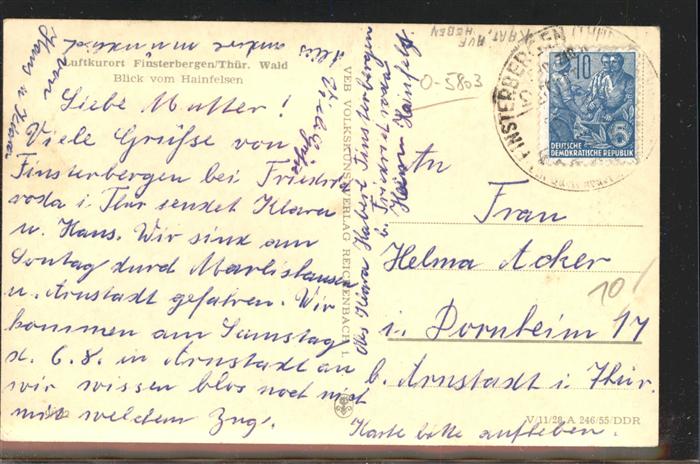 Luftkurort Finsterbergen/Thür. Wald
Blick vom Hainfelsen
Liebe Mutter!
Viele Grüsse von
Finsterbergen bei Friedrich
roda i Thür sendet Klara
u. Hans. Wir sind am
Sontag durch Marlishausen
u. Arnstadt gefahren. Wir
kommen am Samstag
d. 6.8. in Arnstadt an
wir wissen blos noch nicht
mit welchem Zug.
von
Hans u. Klara
Viele Grüsse
VEB VOLKSKUNSTVERLAG REICHENBACH i.
Finsterbergen
b. Friedrichroda
Hainfels
0-5803
FINSTERBERGEN
10
DEUTSCHE
DEMOKRATISCHE REPUBLIK
An
Frau
Helma Acker
i. Dornheim 17
b. Arnstadt i. Thür.
10/
V/11/28 A 246/55/DDR
Karte bitte aufheben.